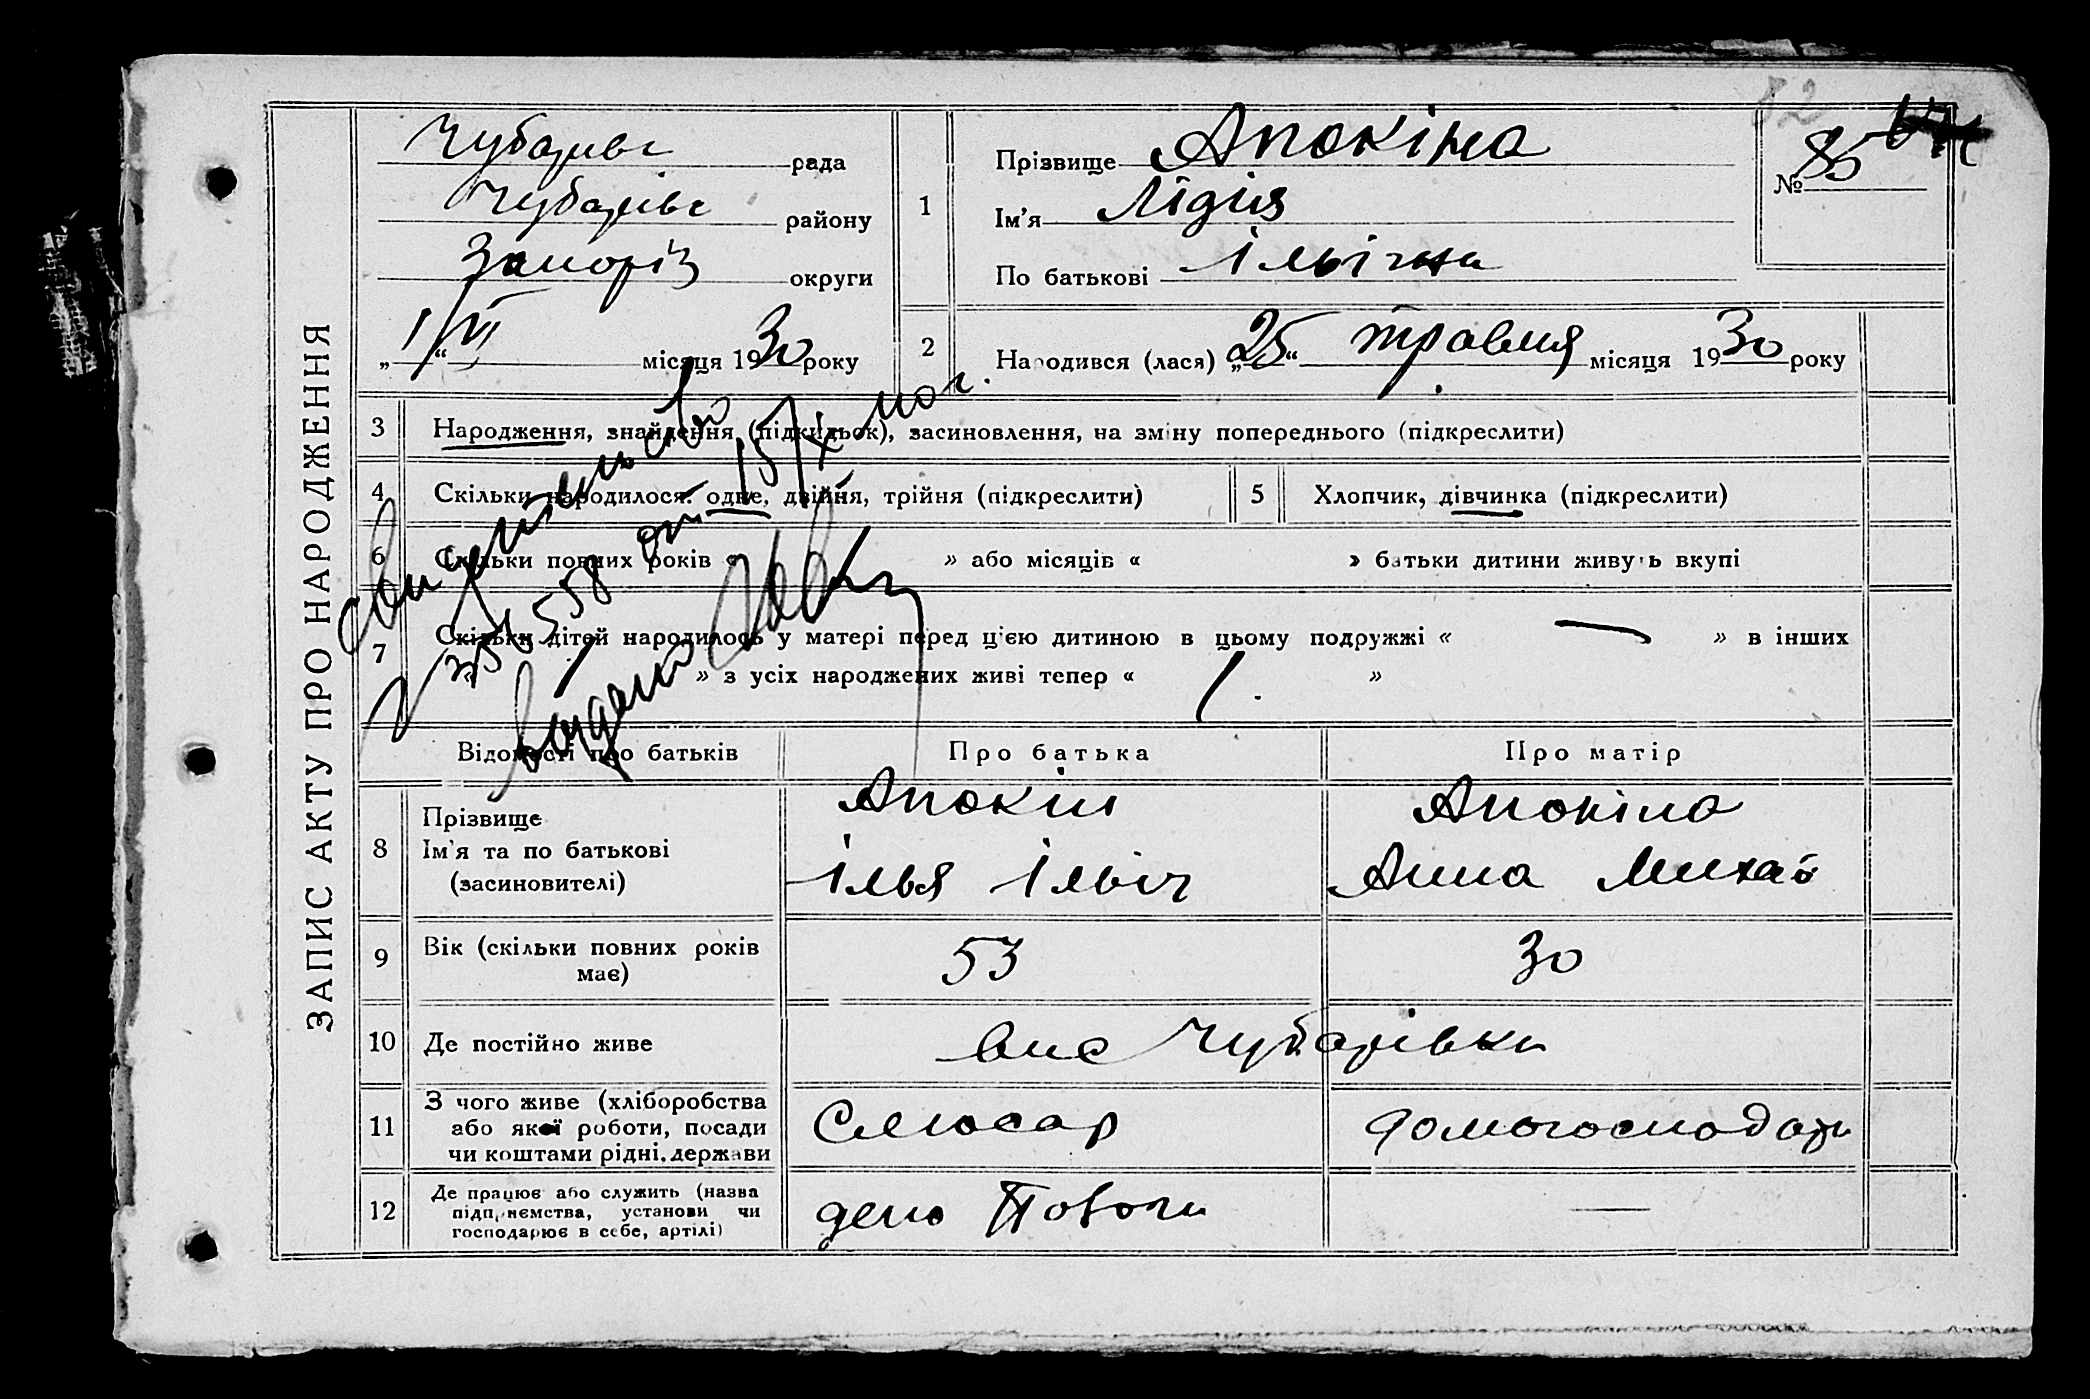 ЗАПИС АКТУ ПРО НАРОДЖЕННЯ
82
Чубарівс рада
Чубарівс району
Запоріз округи
„ 1 “ VI місяця 1930 року
1
Прізвище Апокіна
Ім'я Лідия
По батькові Ільічна
№ 85
2
Народився (лася) „ 25 “ травня місяця 1930 року
3 Народження, знайдення (підкидьок), засиновлення, на зміну попереднього (підкреслити)
4 Скільки народилося: одне, двійня, трійня (підкреслити)
5 Хлопчик, дівчинка (підкреслити)
6 Скільки повних років « » або місяців « » батьки дитини живуть вкупі
7 Скільки дітей народилось у матері перед цією дитиною в цьому подружжі « — » в інших
« 1 » з усіх народжених живі тепер « 1. »
Свидетельство
558 от 15/X
выдано
Відомості про батьків Про батька Про матір
8 Прізвище
Ім'я та по батькові
(засиновителі)
Апокін
Ілья Ільіч
Апокіна
Анна Михай
9 Вік (скільки повних років
має)
53
30
10 Де постійно живе
вис Чубарівка
11 З чого живе (хліборобства
або якої роботи, посади
чи коштами рідні, держави
Слюсар
домогосподар
12 Де працює або служить (назва
підприємства, установи чи
господарює в себе, артілі)
депо Пологи
—